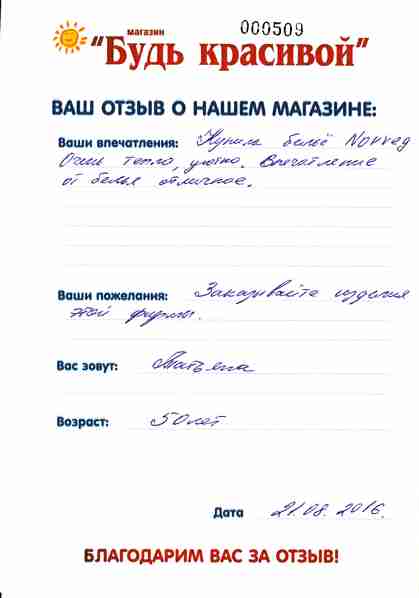 магазин
000509
"Будь красивой"
ВАШ ОТЗЫВ О НАШЕМ МАГАЗИНЕ:
Ваши впечатления: Купила бельё Norveg
Очень тепло, уютно. Впечатление
от белья отличное.
Ваши пожелания: Заказывайте изделия
этой фирмы.
Вас зовут: Татьяна
Возраст: 50 лет
Дата 21.08.2016.
БЛАГОДАРИМ ВАС ЗА ОТЗЫВ!